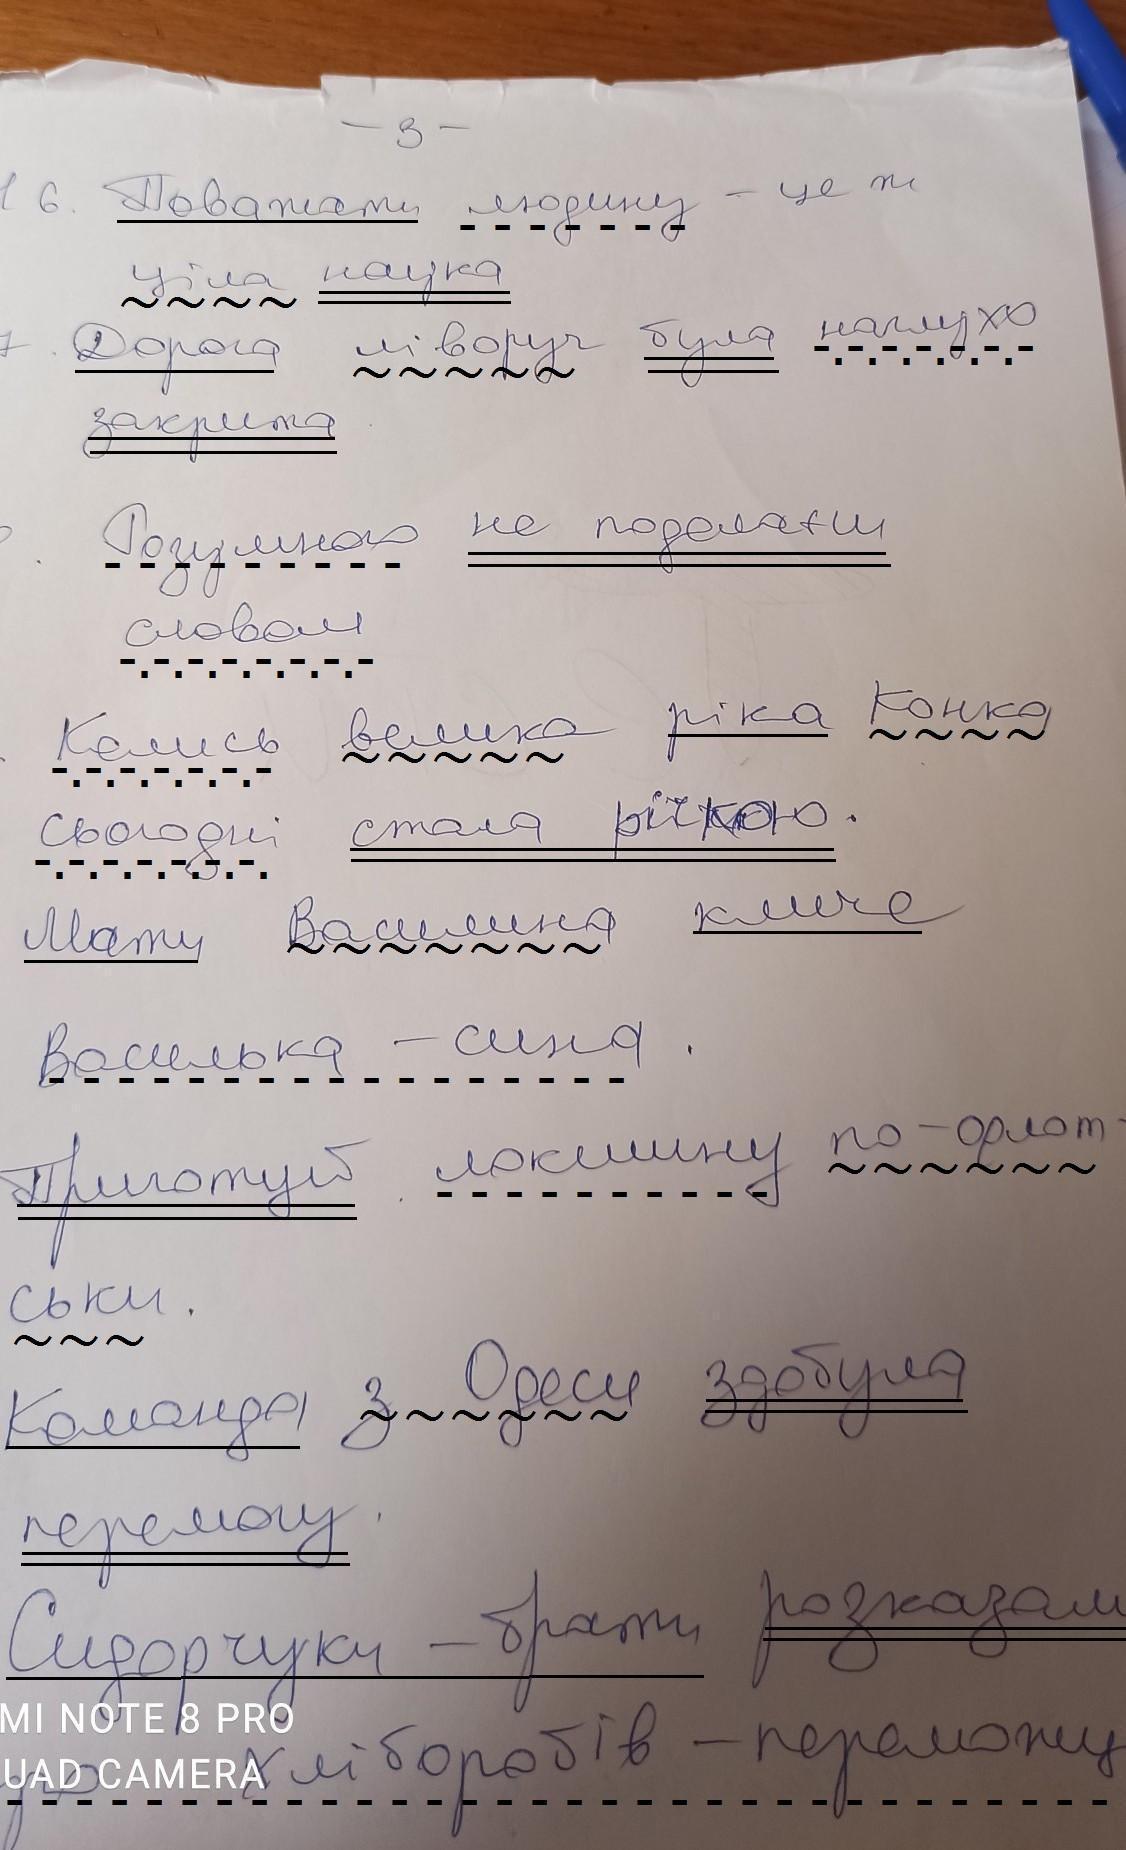 - 3 -
6. Поважати людину - це ж
ціла наука
7. Дорога ліворуч була наглухо
закрита
Розумного не подолати
словом
Колись велика ріка Конка
сьогодні стала річкою.
Мати Василина кличе
Василька - сина.
Приготуй локшину по-флот-
ськи.
Команда з Одеси здобула
перемогу.
Сидорчуки - брати розказали
про хліборобів - переможц
MI NOTE 8 PRO
UAD CAMERA